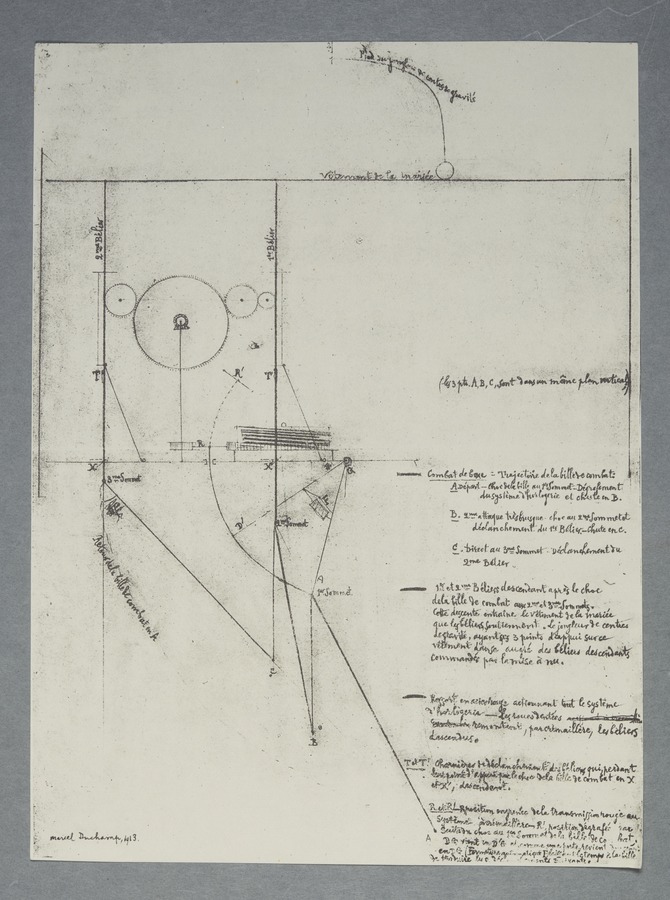 Pied du jongleur de centre de gravité
Vêtement de la mariée
2me Bélier
1er Bélier
T'
T
R'
R
C
X'
X
3me Sommet
2me Sommet
B'
A
1er Sommet
C
B
A
Retour de la bille de combat en A
(les 3 pts. A, B, C, sont dans un même plan vertical)
Combat de boxe = Trajectoire de la bille de combat:
A. Départ — choc de la bille au 1er Sommet - Dégrafement
du système d'horlogerie et chute en B.
B. 2me attaque très brusque choc au 2me Sommet et
déclanchement du 1er Bélier — Chute en C.
C. Direct au 3me Sommet - Déclanchement du
2me Bélier.
1er et 2me Béliers descendant après le choc
de la bille de combat aux 2me et 3me Sommets.
Cette descente entraîne le vêtement de la mariée
que les béliers soutiennent. Le jongleur de centre
de gravité, ayant ses 3 points d'appui sur ce
vêtement danse au gré des béliers descendants,
commandés par la mise à nu.
Ressort en actionnant tout le système
d'horlogerie — Les roues dentées
remontent, par crémaillère, les béliers
descendus.
T et T' Charnières de déclanchement des béliers qui, perdant
leur point d'appui par le choc de la bille de combat en X
et X', descendent.
R et R' position de la transmission rouge au
Système R', position dégrafée
Suite du choc au 1er Sommet de la bille de
vient en
la bille
marcel Duchamp, 1913.